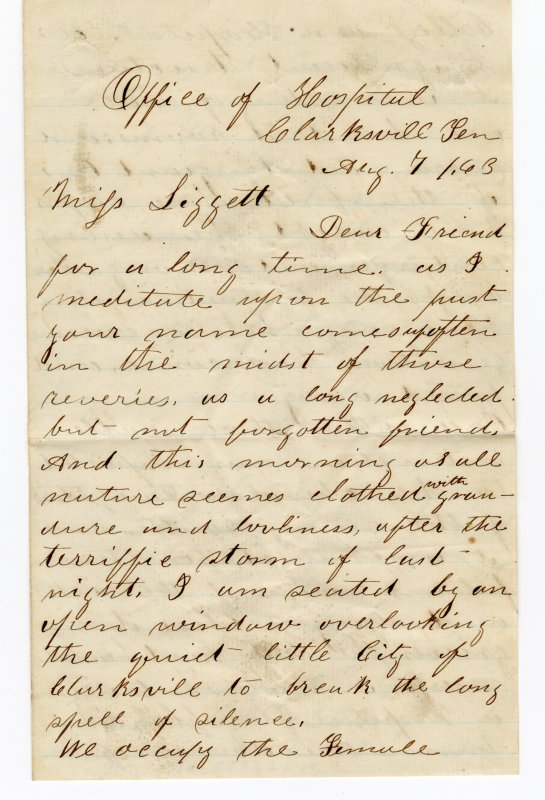 Office of Hospital
Clarksvill Ten
Aug. 7 /63
Miss Liggett
Dear Friend
for a long time. as I
meditate upon the past
your name comes up often
in the midst of those
reveries, as a long neglected.
but not forgotten friend,
And this morning as all
nature seemes clothed with gran-
dure and lovliness, after the
terriffic storm of last
night, I am seated by an
open window overlooking
the quiet little City of
Clarksvill to break the long
spell of silence.
We occupy the Female